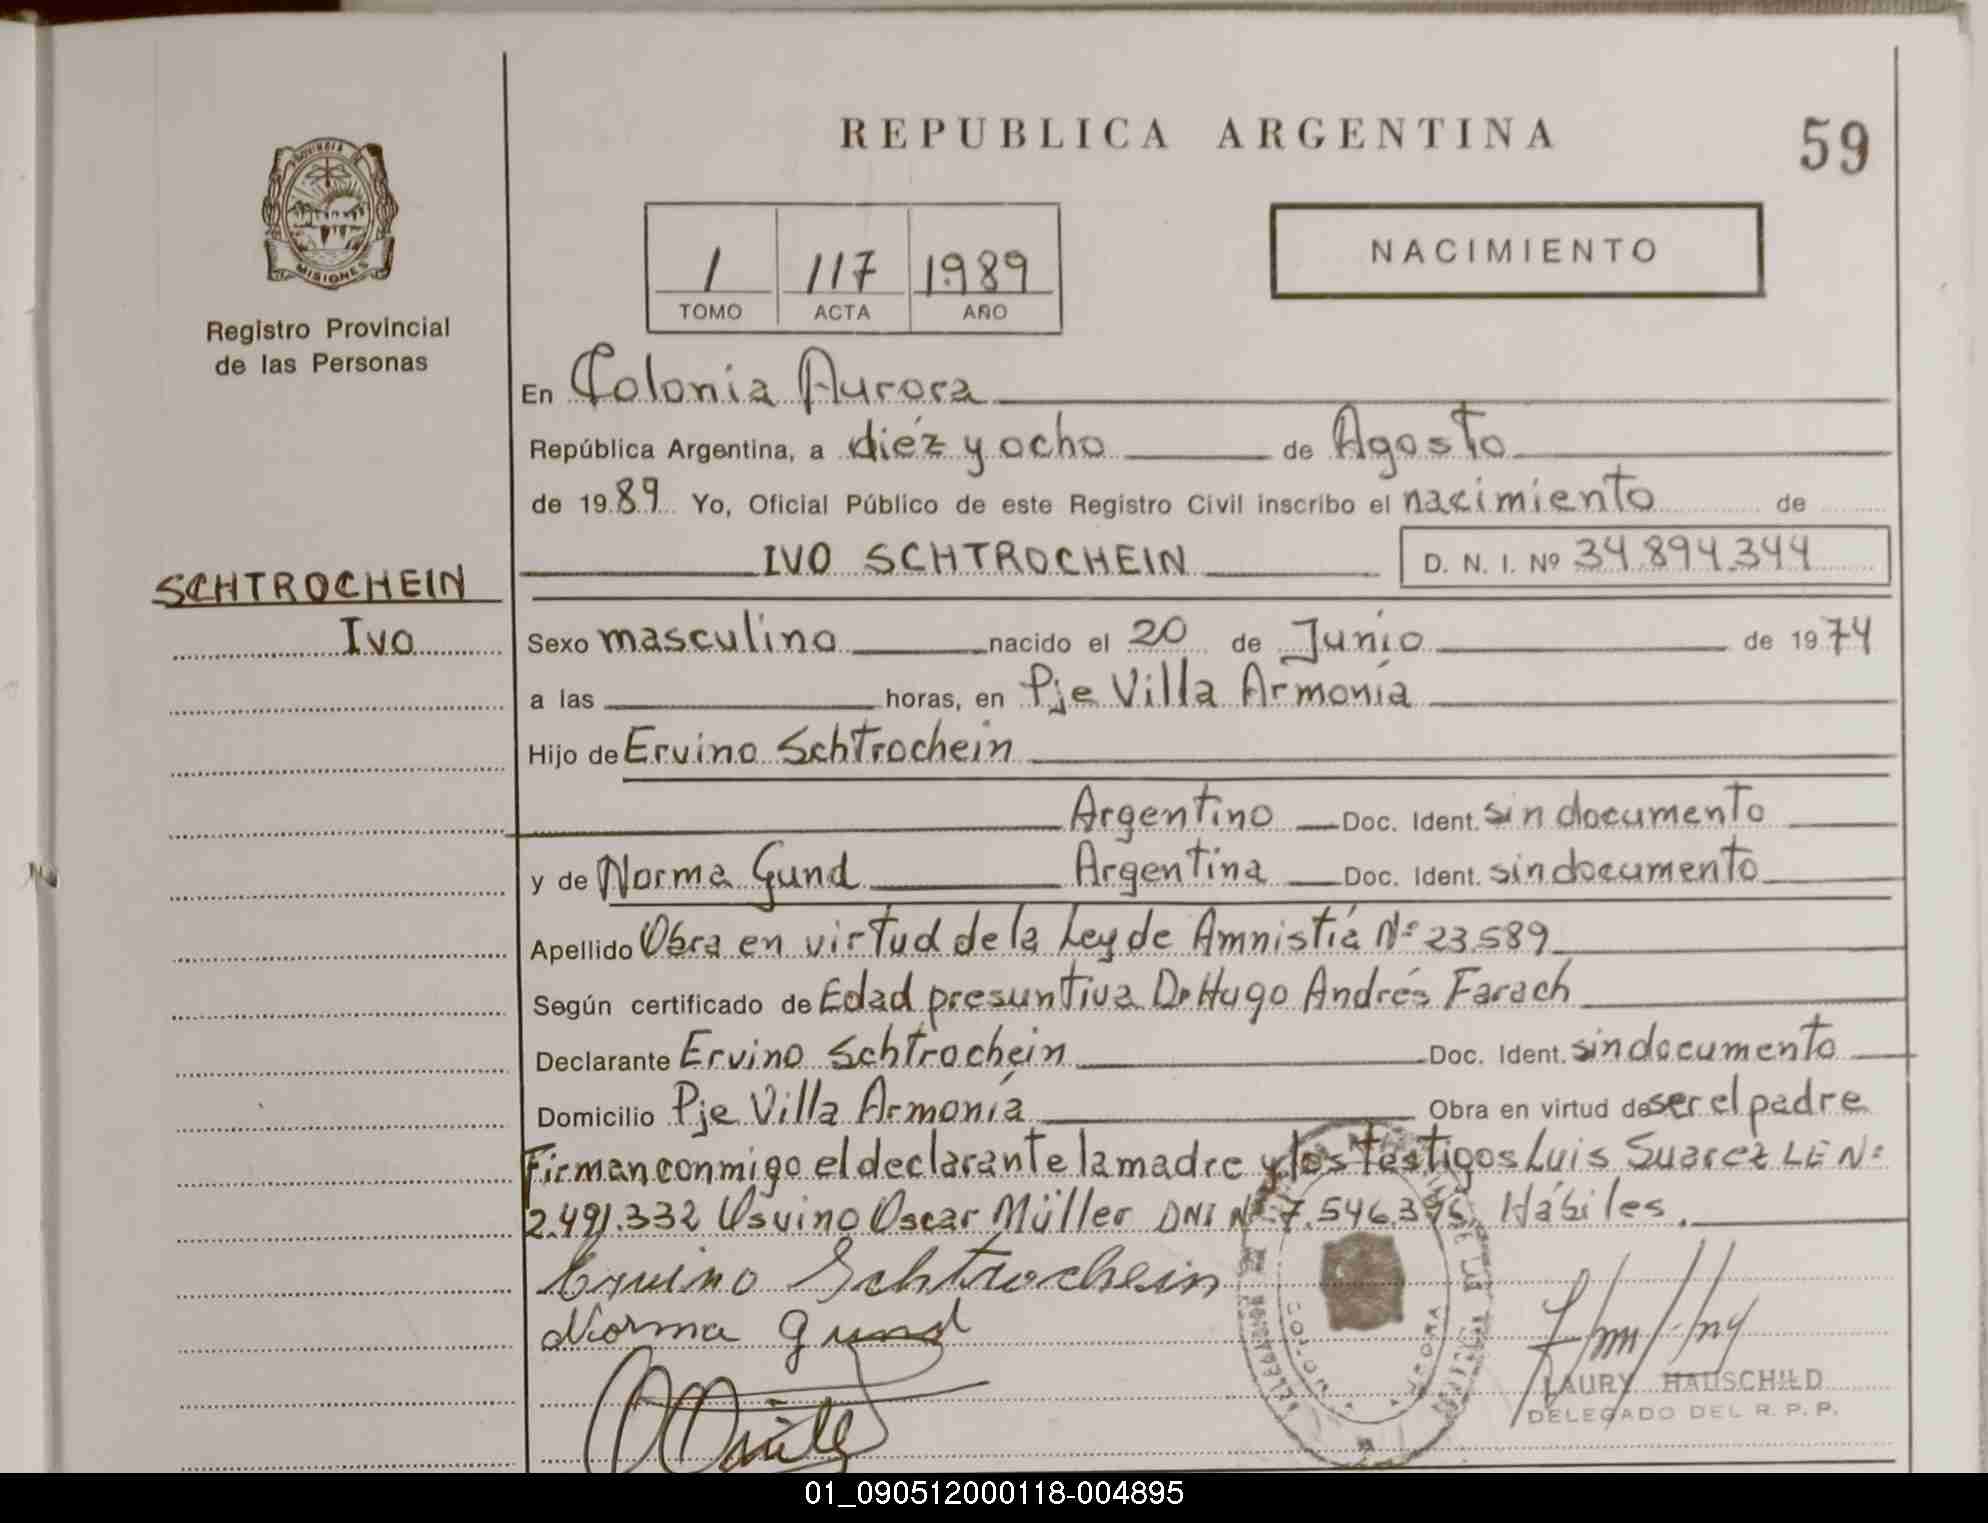 REPUBLICA ARGENTINA
59
PROVINCIA DE
MISIONES
Registro Provincial
de las Personas
1 117 1989
TOMO ACTA AÑO
NACIMIENTO
En Colonia Aurora
República Argentina, a diéz y ocho de Agosto
de 1989 Yo, Oficial Público de este Registro Civil inscribo el nacimiento de
IVO SCHTROCHEIN D. N. I. Nº 34.894.344
SCHTROCHEIN
Ivo
Sexo masculino nacido el 20 de Junio de 1974
a las horas, en Pje Villa Armonía
Hijo de Ervino Schtrochein
Argentino Doc. Ident. sin documento
y de Norma Gund Argentina Doc. Ident. sin documento
Apellido Obra en virtud de la Ley de Amnistía Nº 23.589
Según certificado de Edad presuntiva Dr Hugo Andrés Farach
Declarante Ervino Schtrochein Doc. Ident. sin documento
Domicilio Pje Villa Armonía Obra en virtud de ser el padre
Firman conmigo el declarante la madre y los testigos Luis Suarez LE Nº
2.491.332 Osvino Oscar Müller DNI Nº 7.546.395 Hábiles.
Ervino Schtrochein
Norma Gund
LAURY HAUSCHILD
DELEGADO DEL R. P. P.
01_090512000118-004895